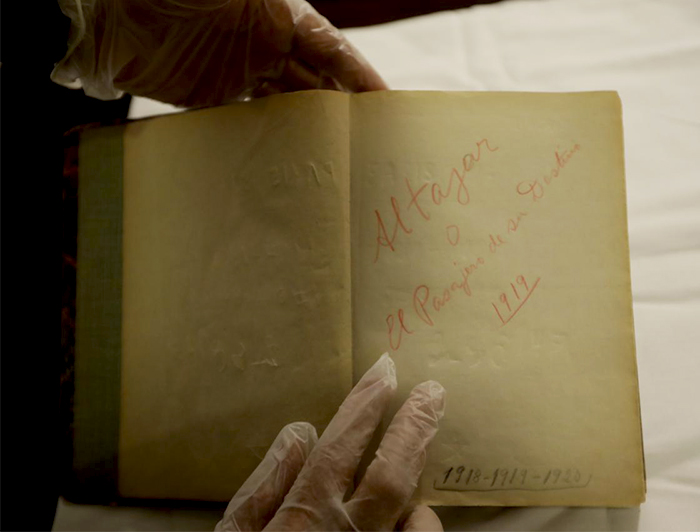 Altazor
O
El Pasajero de su Destino
1919
1918-1919-1920